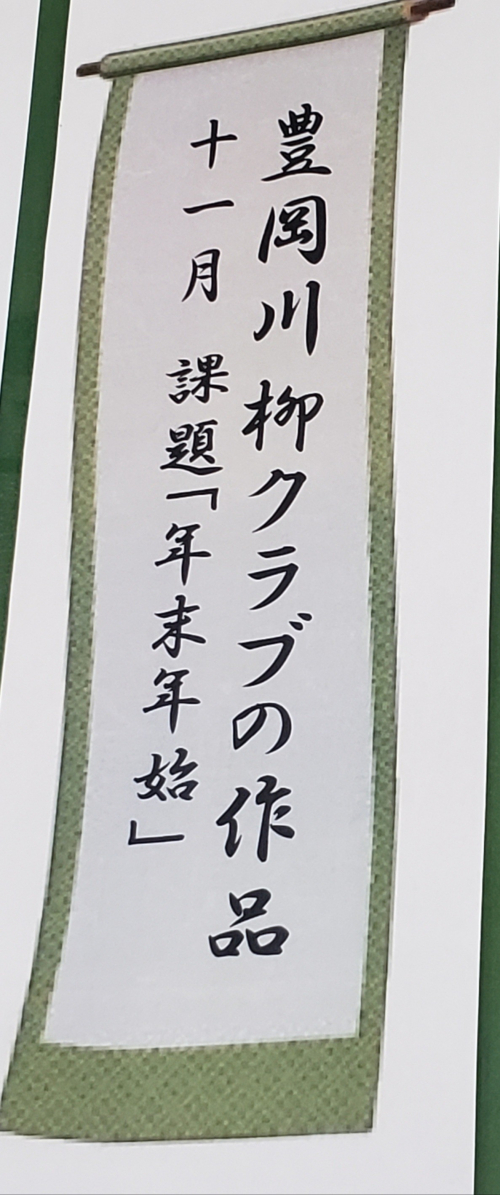 豊岡川柳クラブの作品
十一月 課題「年末年始」